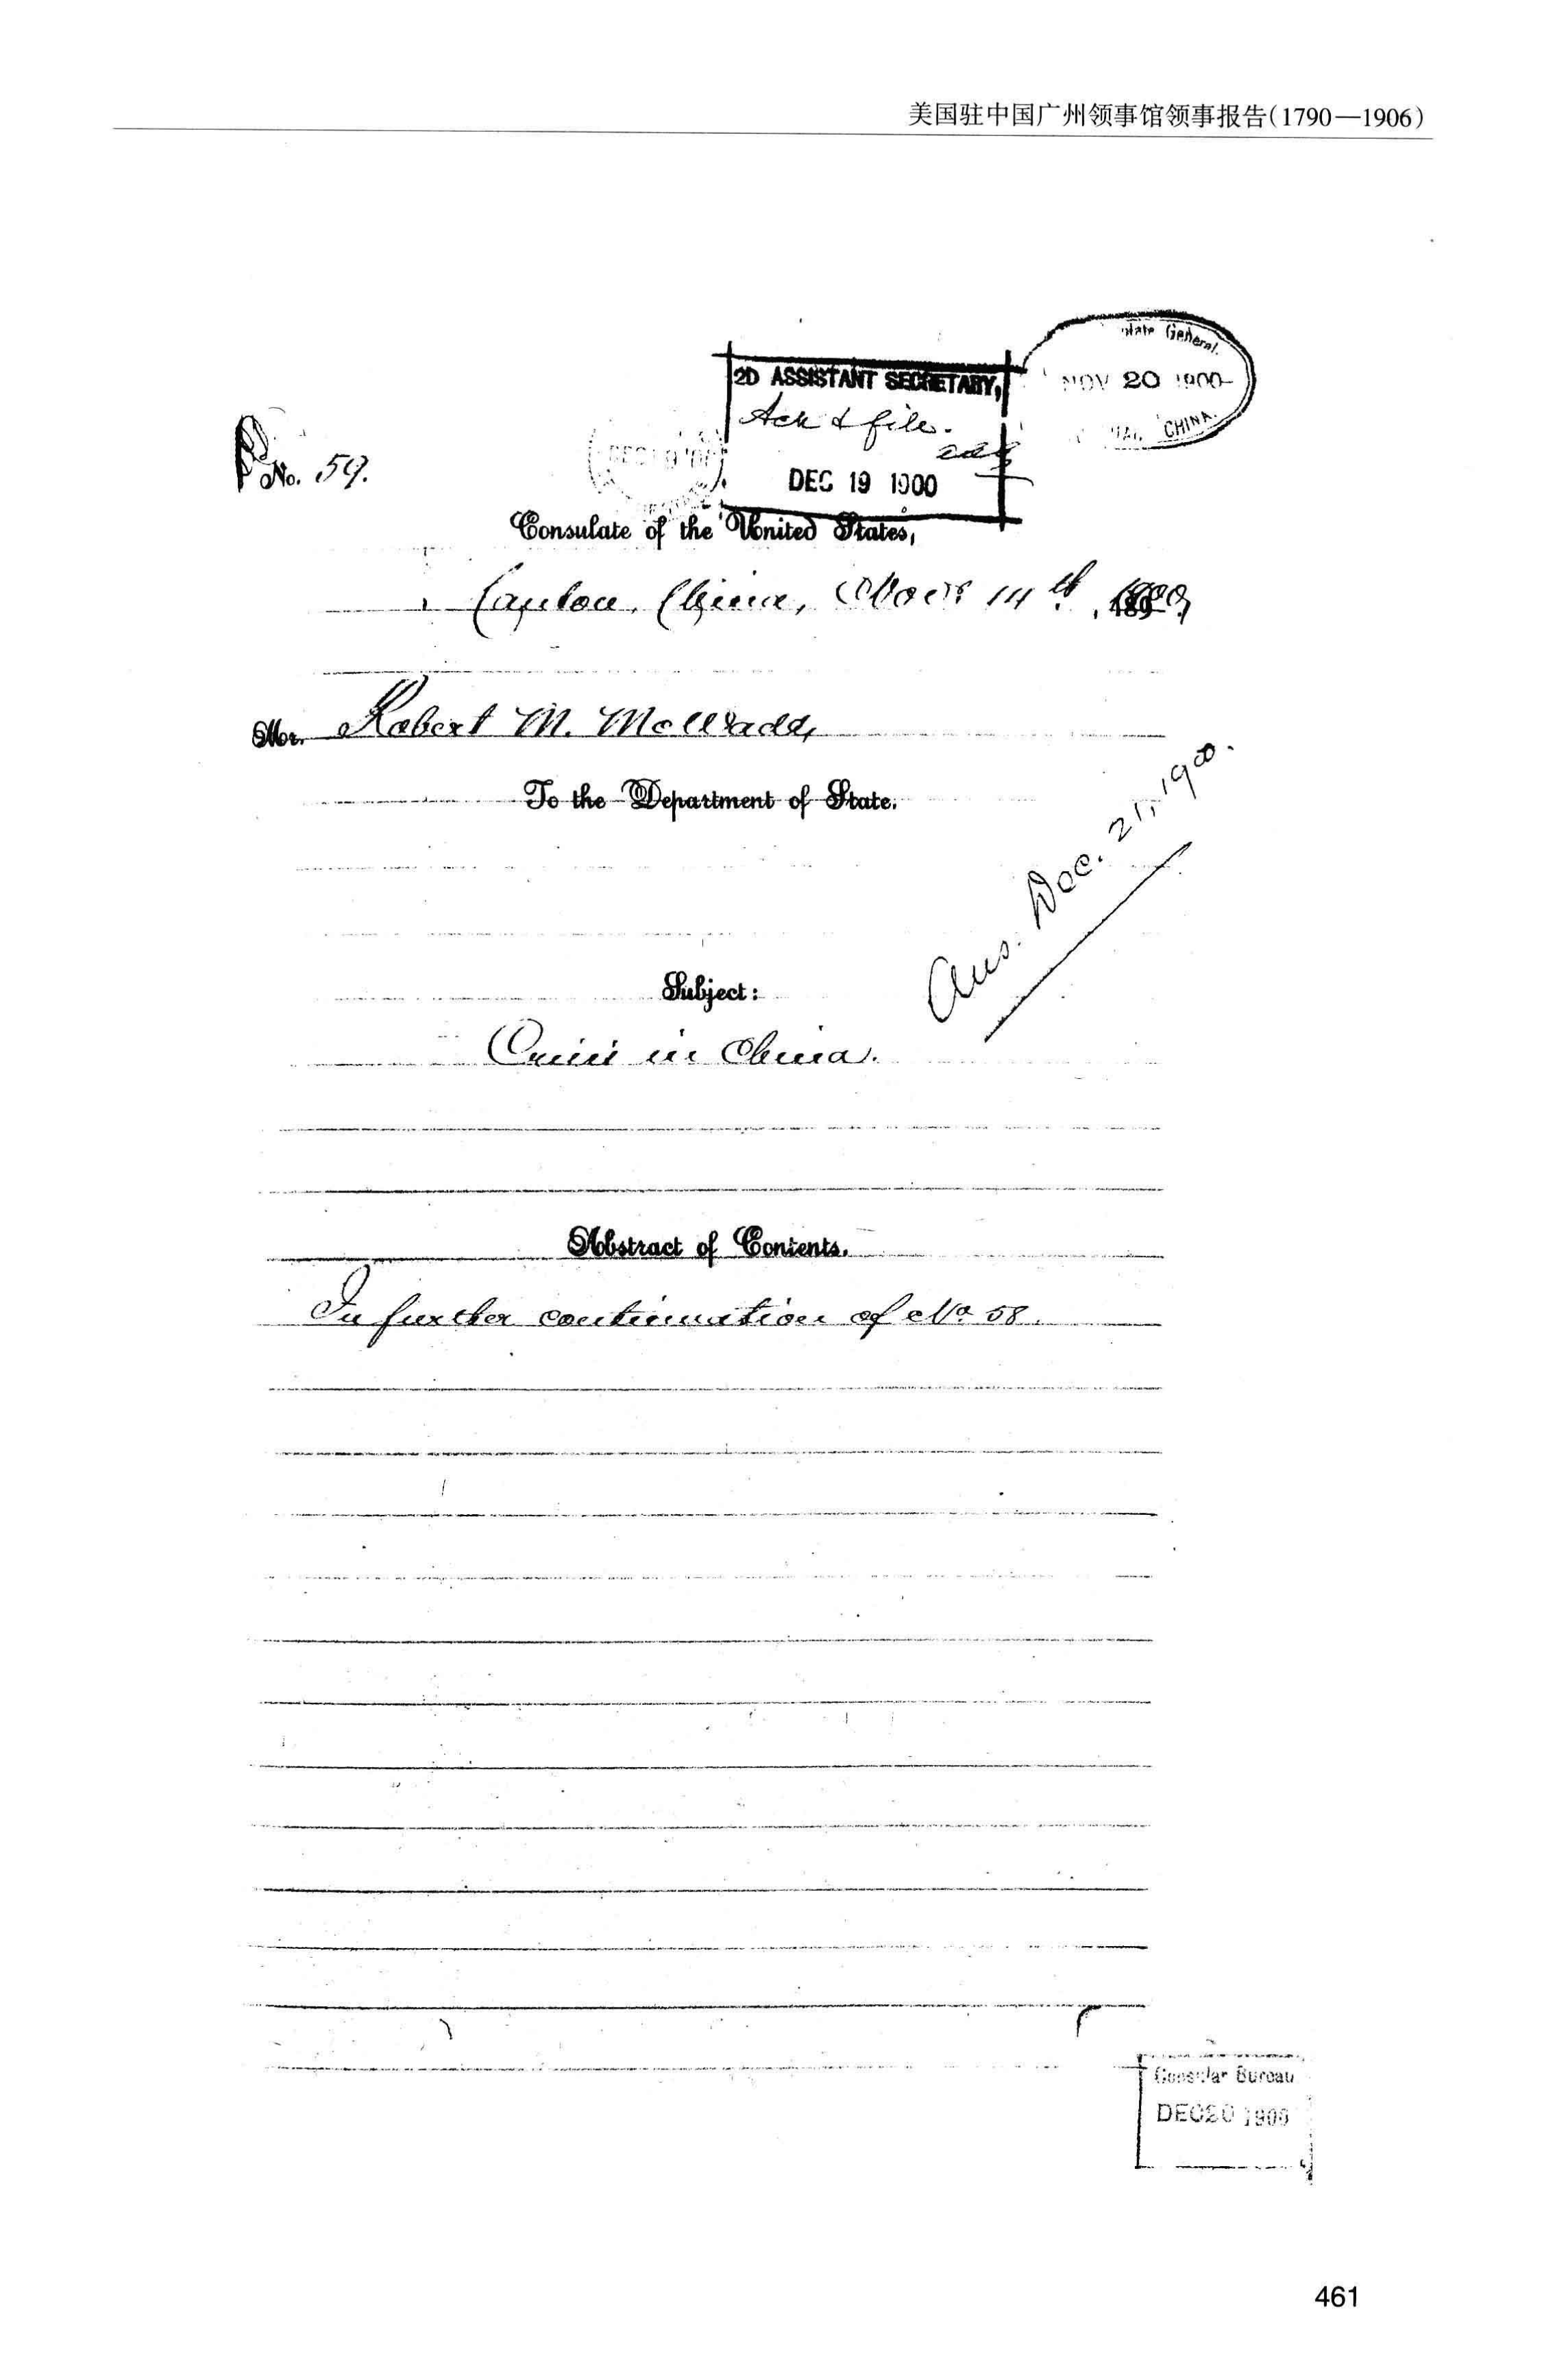 美国驻中国广州领事馆领事报告(1790—1906)
General.
NOV 20 1900
CHINA.
2D ASSISTANT SECRETARY,
Ack & file.
DEC 19 1900
No. 59.
Consulate of the United States,
Canton, China, Nov. 14th, 1900,
Mr. Robert M. McWade,
To the Department of State.
Ans. Dec. 21, 1900.
Subject:
Crisis in China.
Abstract of Contents.
In further continuation of No. 58.
Consular Bureau
DEC 20 1900
461